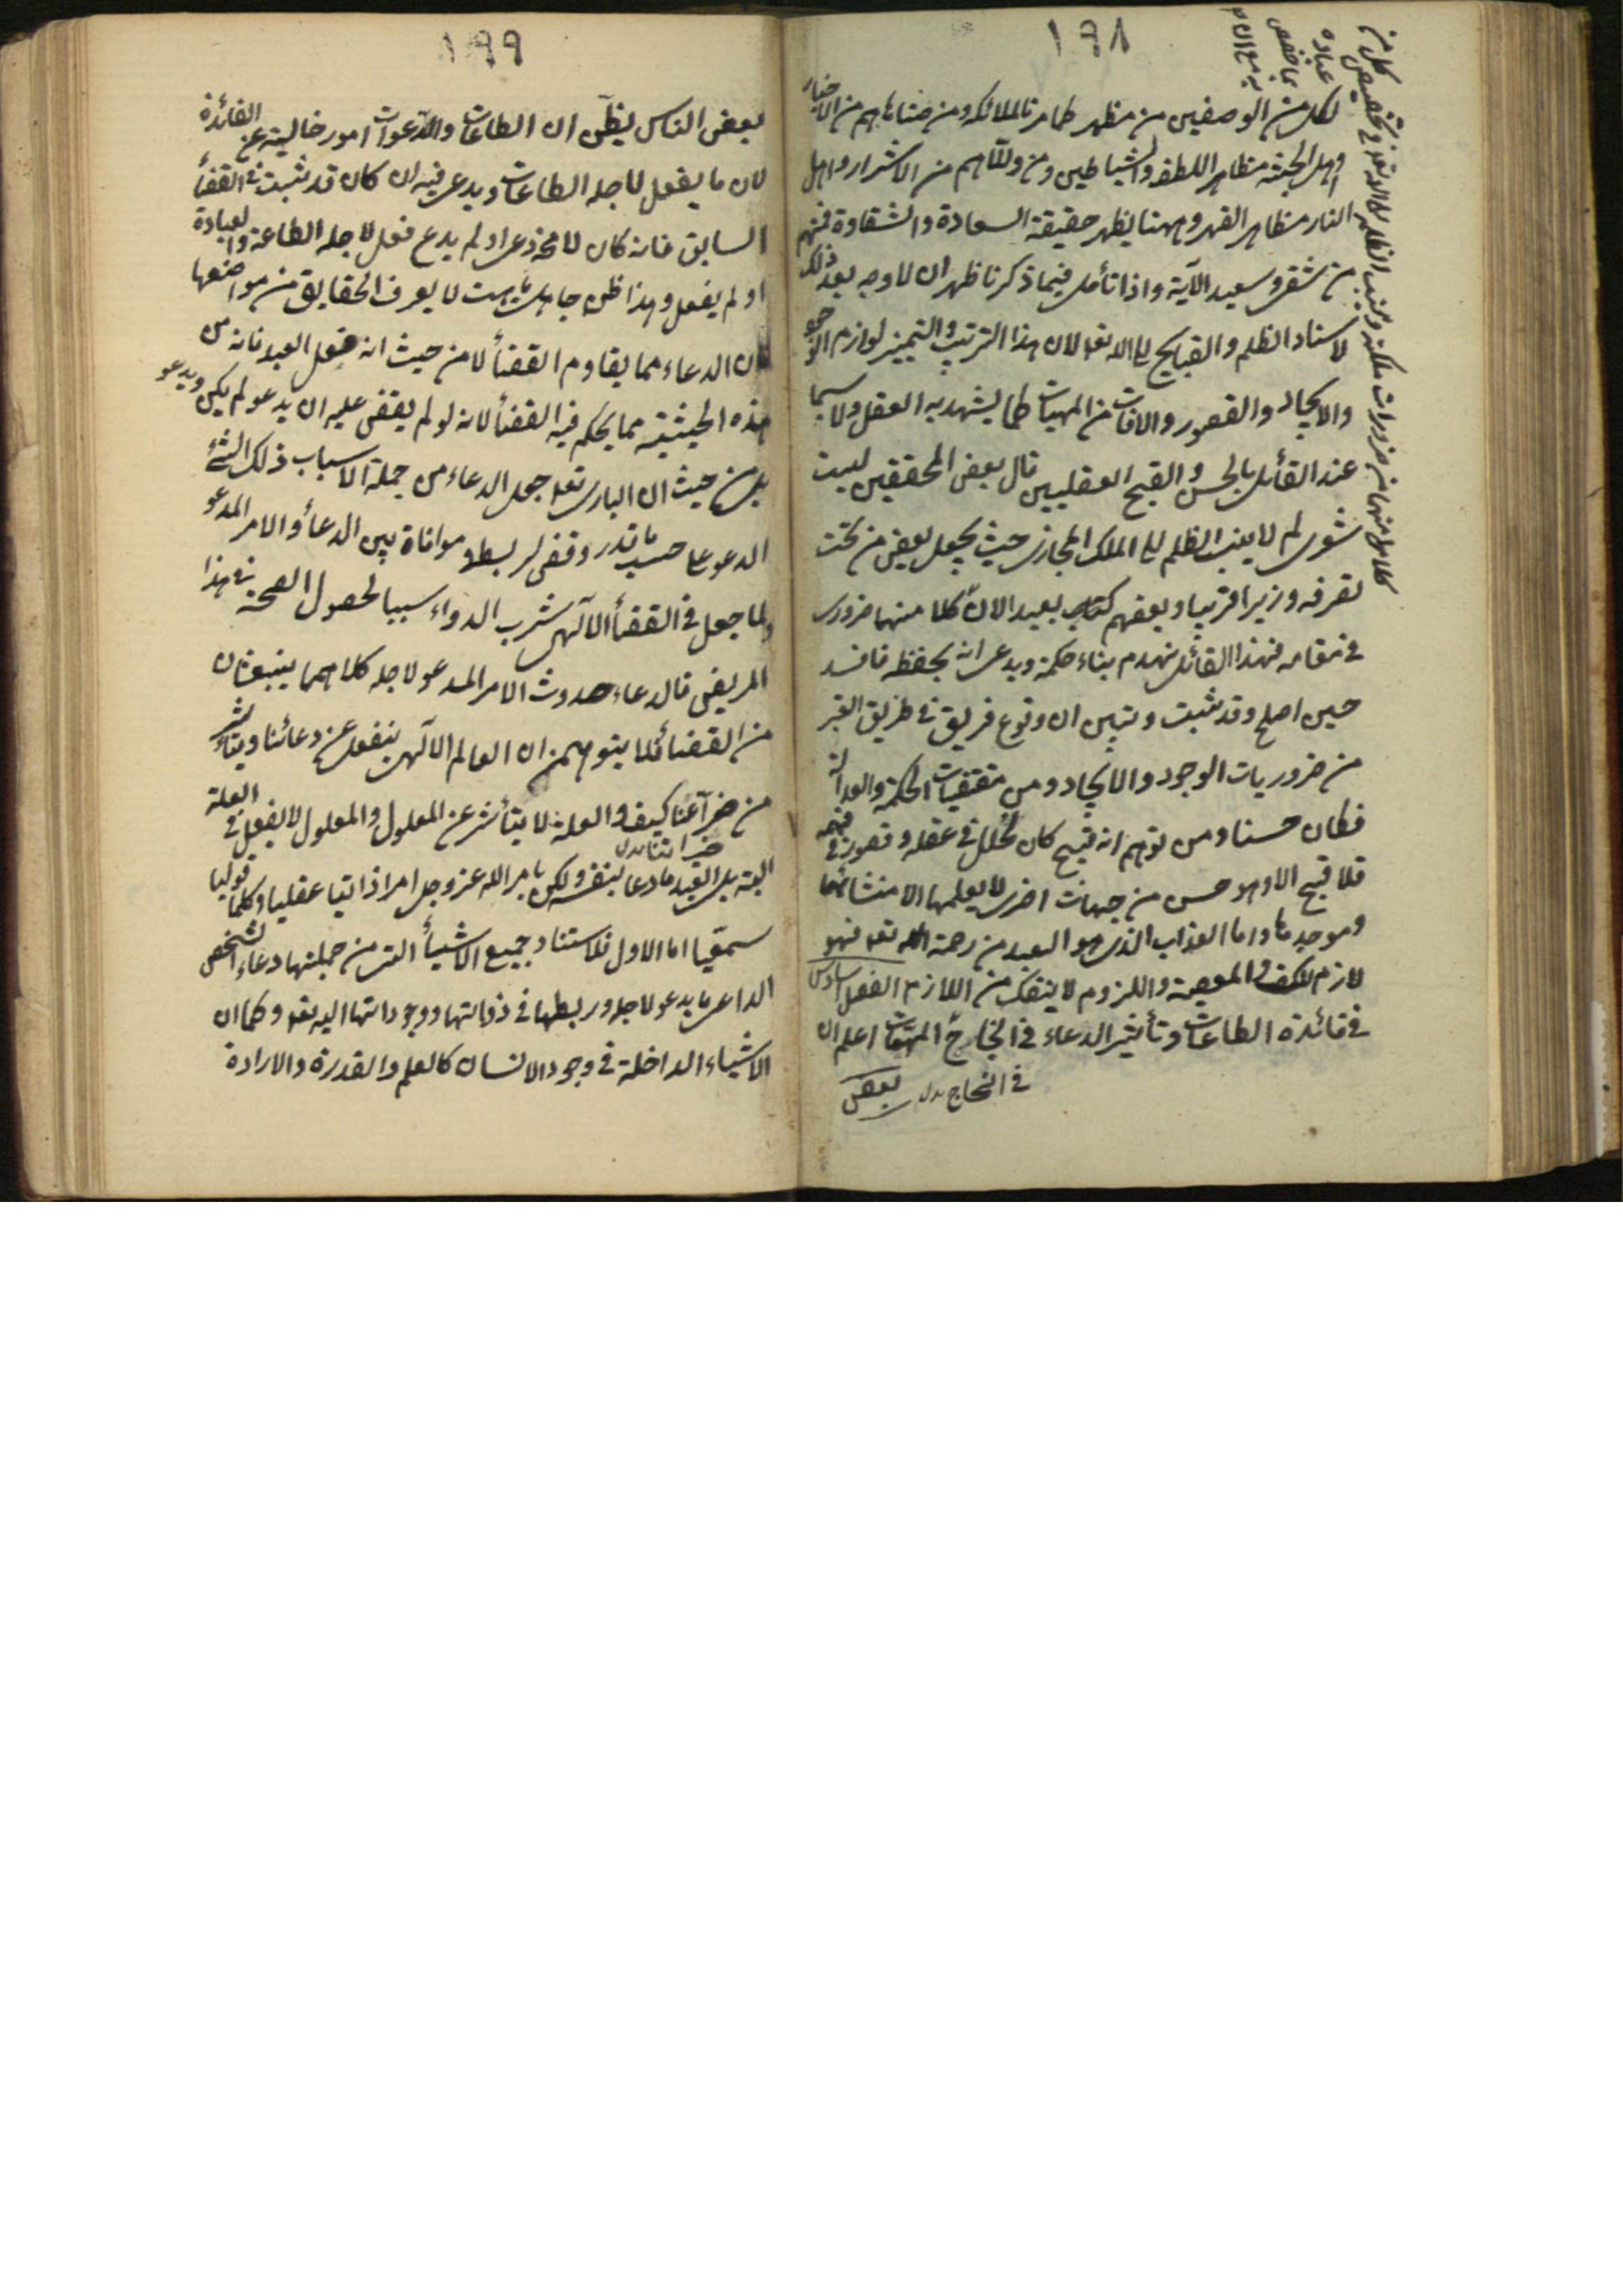 ١٩٨
لكل من الوصفين من مظهر كما مر فالملائكة ومن ضاهاهم من الاخيار
واهل الجنة مظاهر اللطف والشياطين ومن والاهم من الاشرار واهل
النار مظاهر القهر وههنا يظهر حقيقة السعادة والشقاوة فمنهم
من شقى وسعيد الآية واذا تأمل فيما ذكرنا ظهر ان لا وجه بعد ذلك
لاسناد الظلم والقبايح الى الله تعالى لان هذا الترتيب والتميز لوازم الوجود
والايجاد والقصور والافات من المهيات كما يشهد به العقل ولا سيما
عند القائل بالحسن والقبح العقليين قال بعض المحققين ليت
شعرى لم لا ينسب الظلم الى الملك المجازى حيث يجعل بعض من تحت
تصرفه وزيرا قريبا وبعضهم كناسا بعيدا لان كلا منهما ضرورى
فى مقامه فهذا القائل يهدم بناء حكمة ويدعى انه يحفظه فافسد
حين اصلح وقد ثبت وتبين ان وقوع فريق فى طريق القهر
من ضروريات الوجود والايجاد ومن مقتضيات الحكمة والعدالة
فكان حسنا ومن توهم انه قبيح كان لخلل فى عقله وقصور فى فهمه
فلا قبيح الا وهو حسن من جهات اخرى لا يعلمها الا منشائها
وموجدها واما العذاب الذى هو البعد من رحمة الله تعالى فهو
لازم للكفر والمعصية والملزوم لا ينفك من اللازم الفصل السادس
فى فائدة الطاعات وتأثير الدعاء فى انجاح المهمات اعلم ان
فى النجاح بدل
بعض
١٩٩
بعض الناس يظن ان الطاعات والدعوات امور خالية عن الفائدة
لان ما يفعل لاجله الطاعات ويدعى فيه ان كان قد ثبت فى القضأ
السابق فانه كان لا محة دعى او لم يدع فعل لاجله الطاعة والعبادة
او لم يفعل وهذا ظن جاهل باهت لا يعرف الحقايق من مواضعها
فان الدعاء مما يقاوم القضأ لا من حيث انه فعل العبد فانه من
هذه الحيثية مما يحكم فيه القضأ لانه لو لم يقض عليه ان يدعو لم يكن ويدعو
بل من حيث ان البارى تعالى جعل الدعاء من جملة الاسباب ذلك الشئ
المدعو على حسب ما قدر وقضى لربطه موافاة بين الدعأ والامر المدعو
ولما جعل فى القضأ الآلهى شرب الدواء سببا لحصول الصحة فى هذا
المريض فالدعاء وحدوث الامر المدعو لاجله كلاهما ينبعثان
من القضأ فلا يتوهمن ان العالم الآلهى ينفعل عن دعائنا ويتأثر
من ضرآعنا كيف والعلة لا يتأثر عن المعلول والمعلول لا يفعل فى العلة
ضراعتنا بدل
البتة بل العبد ما دعا بنفسه ولكن بامر الله عز وجل امرا ذاتيا عقليا وكلما قوليا
سمعيا اما الاول فلاستناد جميع الاشيأ التى من جملتها دعاء الشخص
الداعى ما يدعو لاجله وربطها فى ذواتها ووجوداتها اليه تعالى وكما ان
الاشياء الداخلة فى وجود الانسان كالعلم والقدرة والارادة